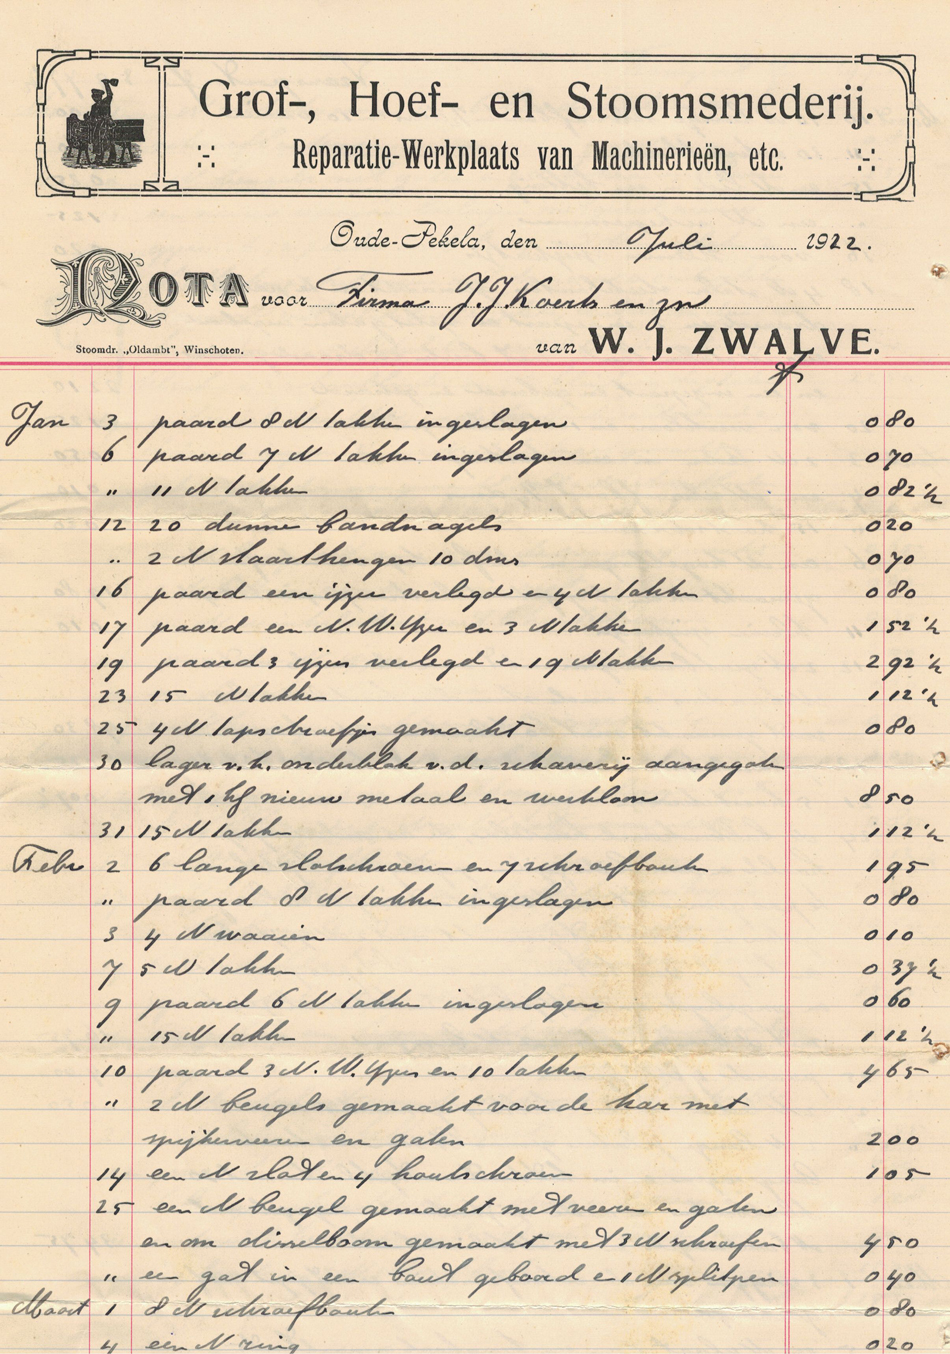 Grof-, Hoef- en Stoomsmederij.
Reparatie-Werkplaats van Machinerieën, etc.
Oude-Pekela, den Juli 1922.
NOTA voor Firma J. J. Koerts en zn
Stoomdr. „Oldambt”, Winschoten.
van W. J. ZWALVE.
Jan 3 paard 8 N takken ingeslagen 0 80
6 paard 7 N takken ingeslagen 0 70
" 11 N takken 0 82 ½
12 20 dunne bandnagels 0 20
" 2 N staarthengen 10 dms 0 70
16 paard een ijzer verlegd en 4 N takken 0 80
17 paard een N. W. Yzer en 3 N takken 1 52 ½
19 paard 3 ijzers verlegd en 19 N takken 2 92 ½
23 15 N takken 1 12 ½
25 4 N tapschroefjes gemaakt 0 80
30 lager v. h. onderblok v. d. schaverij aangegoten
met 1 kg nieuw metaal en werkloon 8 50
31 15 N takken 1 12 ½
Febr 2 6 lange slotschroeven en 7 schroefbouten 1 95
" paard 8 N takken ingeslagen 0 80
3 4 N waaien 0 10
7 5 N takken 0 37 ½
9 paard 6 N takken ingeslagen 0 60
" 15 N takken 1 12 ½
10 paard 3 N. W. Yzers en 10 takken 4 65
" 2 N beugels gemaakt voor de kar met
spijkerveeren en gaten 2 00
14 een N slot en 4 houtschroeven 1 05
25 een N beugel gemaakt met veeren en gaten
en om disselboom gemaakt met 3 N schroefen 4 50
" een gat in een bout geboord en 1 N splitpen 0 40
Maart 1 8 N schroefbouten 0 80
4 een N ring 0 20